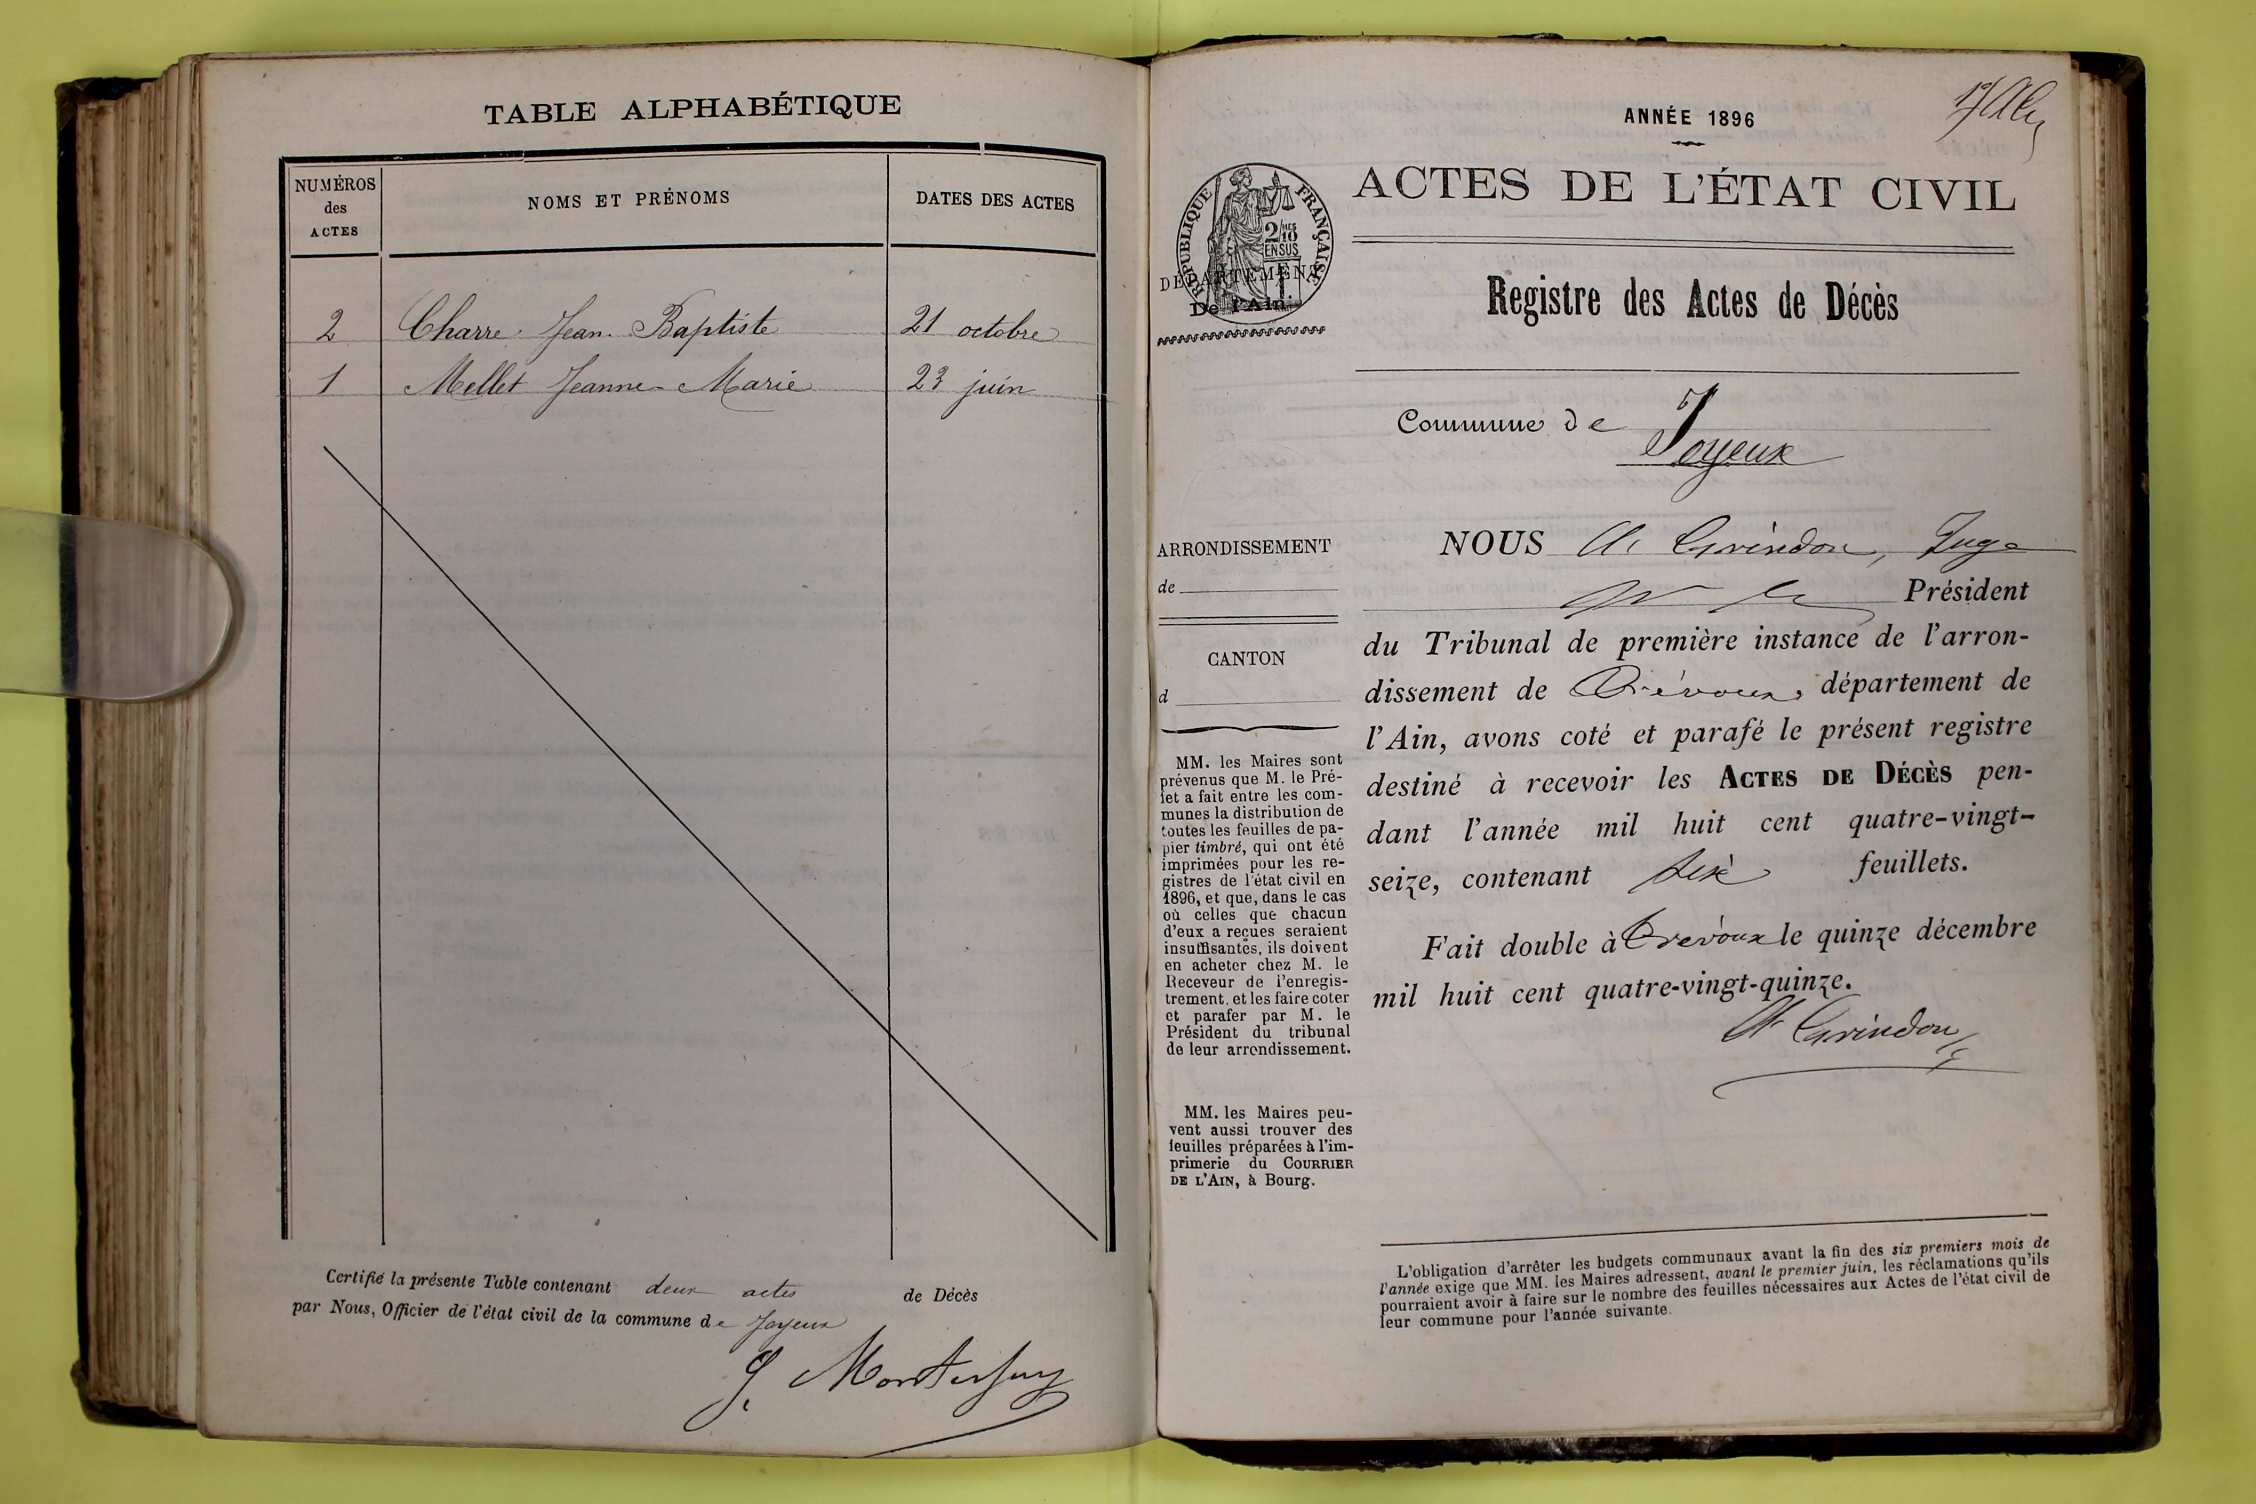 TABLE ALPHABÉTIQUE
NUMÉROS
des
ACTES
NOMS ET PRÉNOMS
DATES DES ACTES
2 Charre Jean Baptiste 21 octobre
1 Mellet Jeanne-Marie 23 juin
Certifié la présente Table contenant deux actes de Décès
par Nous, Officier de l'état civil de la commune de Joyeux
ANNÉE 1896
ACTES DE L'ÉTAT CIVIL
RÉPUBLIQUE FRANÇAISE
2/10
EN SUS
DÉPARTEMENT
De l'Ain.
Registre des Actes de Décès
Commune de Joyeux
ARRONDISSEMENT
de
CANTON
d
MM. les Maires sont
prévenus que M. le Pré-
fet a fait entre les com-
munes la distribution de
toutes les feuilles de pa-
pier timbré, qui ont été
imprimées pour les re-
gistres de l'état civil en
1896, et que, dans le cas
où celles que chacun
d'eux a reçues seraient
insuffisantes, ils doivent
en acheter chez M. le
Receveur de l'enregis-
trement, et les faire coter
et parafer par M. le
Président du tribunal
de leur arrondissement.
MM. les Maires peu-
vent aussi trouver des
feuilles préparées à l'im-
primerie du COURRIER
DE L'AIN, à Bourg.
NOUS A. Grindon, Juge
Président
du Tribunal de première instance de l'arron-
dissement de Trévoux, département de
l'Ain, avons coté et parafé le présent registre
destiné à recevoir les ACTES DE DÉCÈS pen-
dant l'année mil huit cent quatre-vingt-
seize, contenant six feuillets.
Fait double à Trévoux le quinze décembre
mil huit cent quatre-vingt-quinze.
A. Grindon
L'obligation d'arrêter les budgets communaux avant la fin des six premiers mois de
l'année exige que MM. les Maires adressent, avant le premier juin, les réclamations qu'ils
pourraient avoir à faire sur le nombre des feuilles nécessaires aux Actes de l'état civil de
leur commune pour l'année suivante.